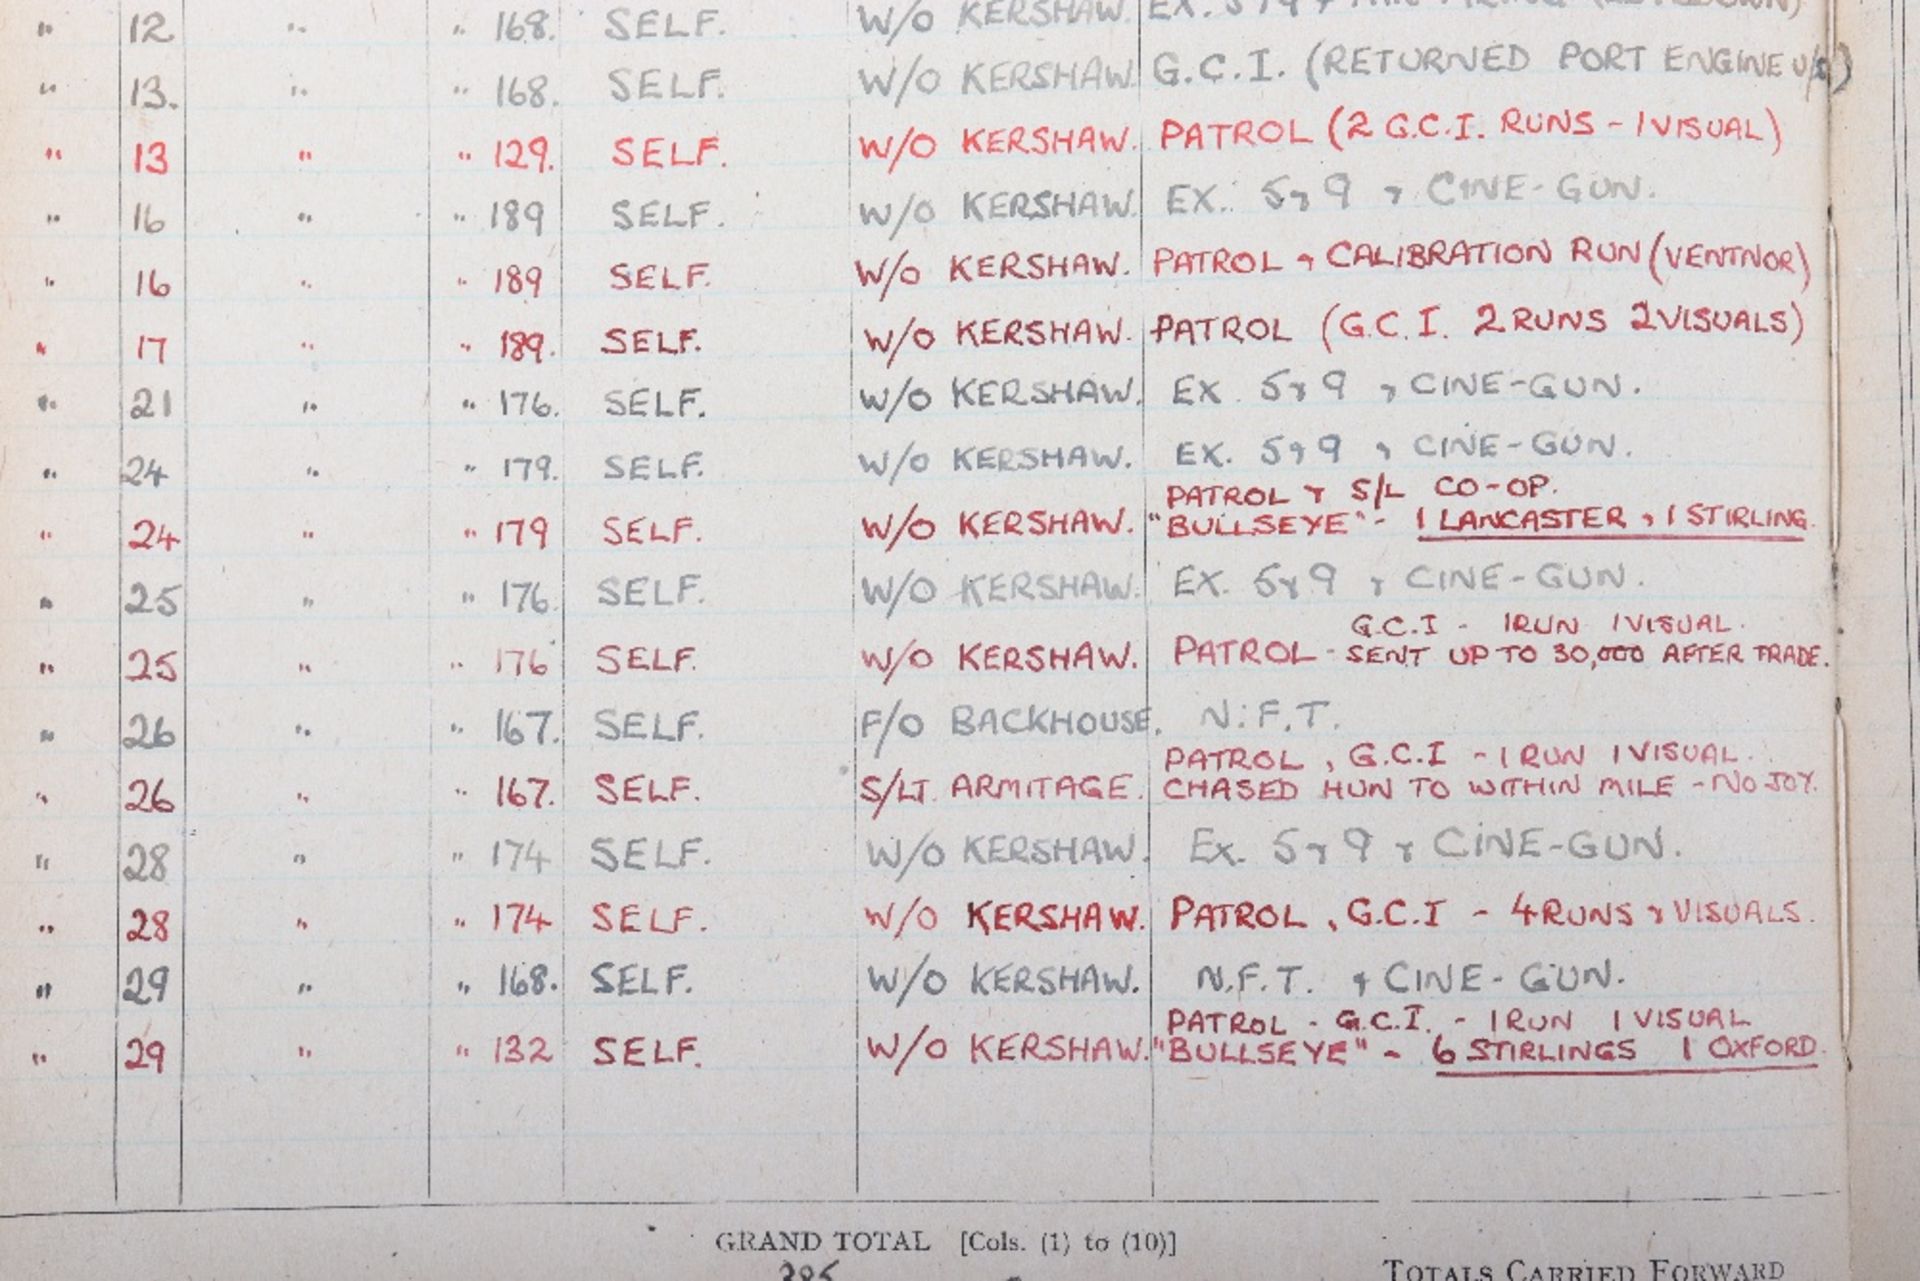 " 12 " " 168. SELF. W/O KERSHAW. EX. 5 & 9 &
" 13. " " 168. SELF. W/O KERSHAW. G.C.I. (RETURNED PORT ENGINE U/S)
" 13 " " 129. SELF. W/O KERSHAW. PATROL (2 G.C.I. RUNS - 1 VISUAL)
" 16 " " 189 SELF. W/O KERSHAW. EX. 5 & 9 & CINE-GUN.
" 16 " " 189 SELF. W/O KERSHAW. PATROL & CALIBRATION RUN (VENTNOR)
" 17 " " 189. SELF. W/O KERSHAW. PATROL (G.C.I. 2 RUNS 2 VISUALS)
" 21 " " 176. SELF. W/O KERSHAW. EX 5 & 9 & CINE-GUN.
" 24 " " 179. SELF. W/O KERSHAW. EX. 5 & 9 & CINE-GUN.
PATROL & S/L CO-OP.
" 24 " " 179 SELF. W/O KERSHAW. "BULLSEYE" - 1 LANCASTER & 1 STIRLING.
" 25 " " 176. SELF. W/O KERSHAW. EX. 5 & 9 & CINE-GUN.
G.C.I - 1 RUN 1 VISUAL.
" 25 " " 176 SELF. W/O KERSHAW. PATROL - SENT UP TO 30,000 AFTER TRADE.
" 26 " " 167. SELF. F/O BACKHOUSE. N.F.T.
PATROL, G.C.I - 1 RUN 1 VISUAL.
" 26 " " 167. SELF. S/LT. ARMITAGE. CHASED HUN TO WITHIN MILE - NO JOY.
" 28 " " 174 SELF. W/O KERSHAW. EX. 5 & 9 & CINE-GUN.
" 28 " " 174 SELF. W/O KERSHAW. PATROL, G.C.I - 4 RUNS & VISUALS.
" 29 " " 168. SELF. W/O KERSHAW. N.F.T. & CINE-GUN.
PATROL - G.C.I. - 1 RUN 1 VISUAL
" 29 " " 132 SELF. W/O KERSHAW. "BULLSEYE" - 6 STIRLINGS 1 OXFORD.
GRAND TOTAL [Cols. (1) to (10)]
TOTALS CARRIED FORWARD